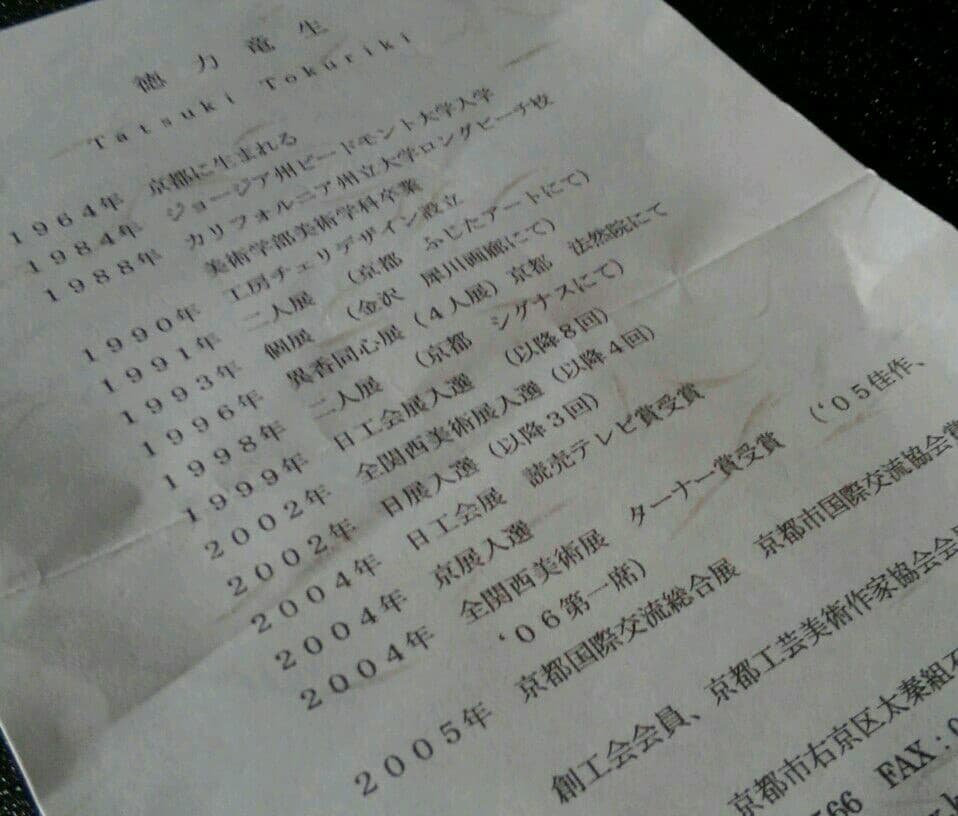 徳力竜生
Tatsuki Tokuriki
1964年 京都に生まれる
1984年 ジョージア州ピードモント大学入学
1988年 カリフォルニア州立大学ロングビーチ校
美術学部美術学科卒業
1990年 工房チェリデザイン設立
1991年 二人展 (京都 ふじたアートにて)
1993年 個展 (金沢 犀川画廊にて)
1996年 異香同心展 (4人展) 京都 法然院にて
1998年 二人展 (京都 シグナスにて)
1999年 日工会展入選 (以降8回)
2002年 全関西美術展入選 (以降4回)
2002年 日展入選 (以降3回)
2004年 日工会展 読売テレビ賞受賞
2004年 京展入選
2004年 全関西美術展 ターナー賞受賞 ('05佳作、
'06第一席)
2005年 京都国際交流総合展 京都市国際交流協会賞
創工会会員、京都工芸美術作家協会会
京都市右京区太秦組石
566 FAX:0